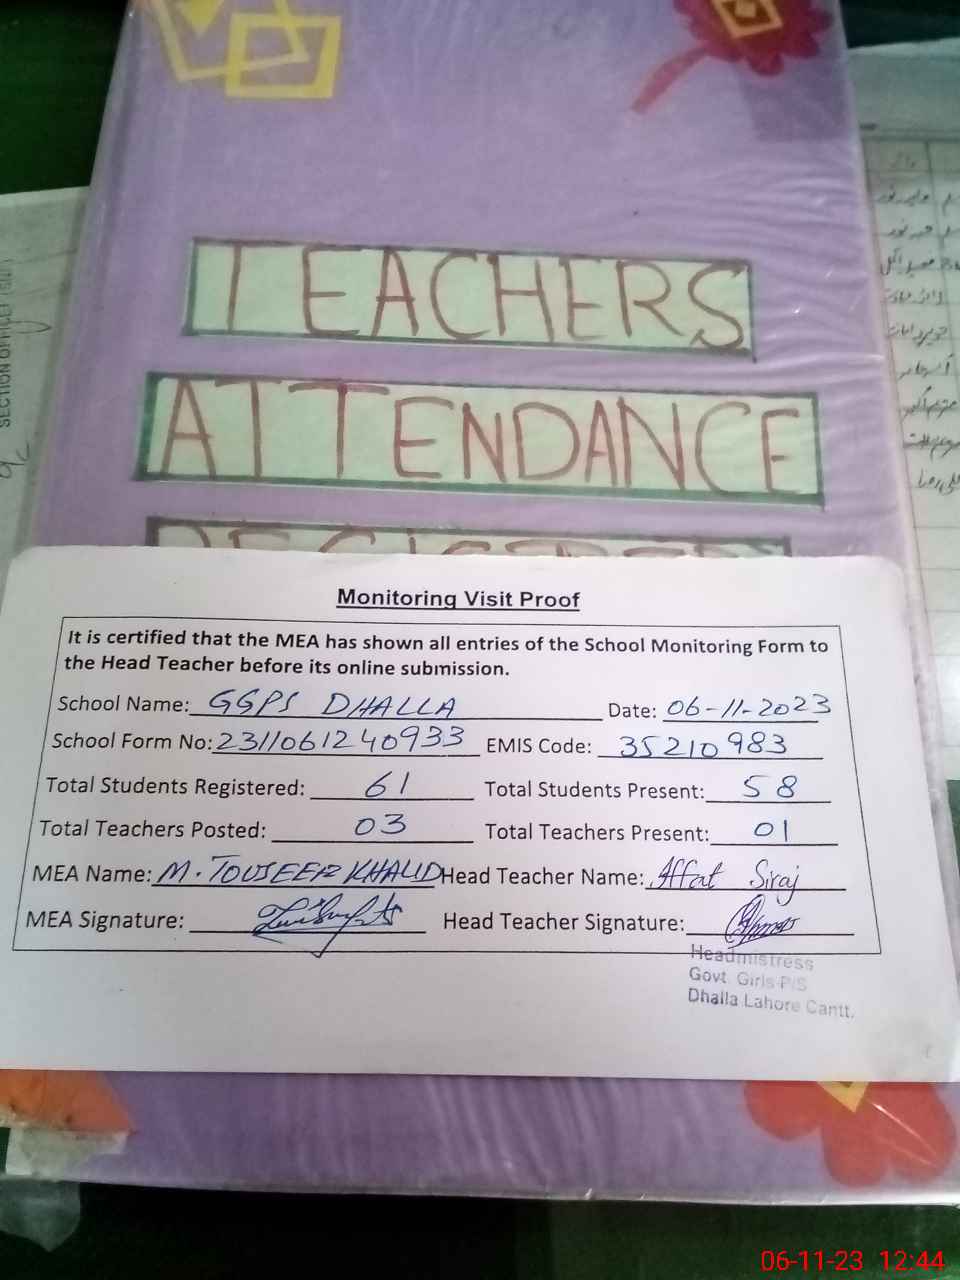 TEACHERS
ATTENDANCE
Monitoring Visit Proof
It is certified that the MEA has shown all entries of the School Monitoring Form to
the Head Teacher before its online submission.
School Name: GGPS DHALLA Date: 06-11-2023
School Form No: 2311061240933 EMIS Code: 35210983
Total Students Registered: 61 Total Students Present: 58
Total Teachers Posted: 03 Total Teachers Present: 01
MEA Name: M. TOUSEEF KHALID Head Teacher Name: Affat Siraj
MEA Signature: Head Teacher Signature:
Headmistress
Govt. Girls P/S
Dhalla Lahore Cantt.
SECTION OFFICER
06-11-23 12:44